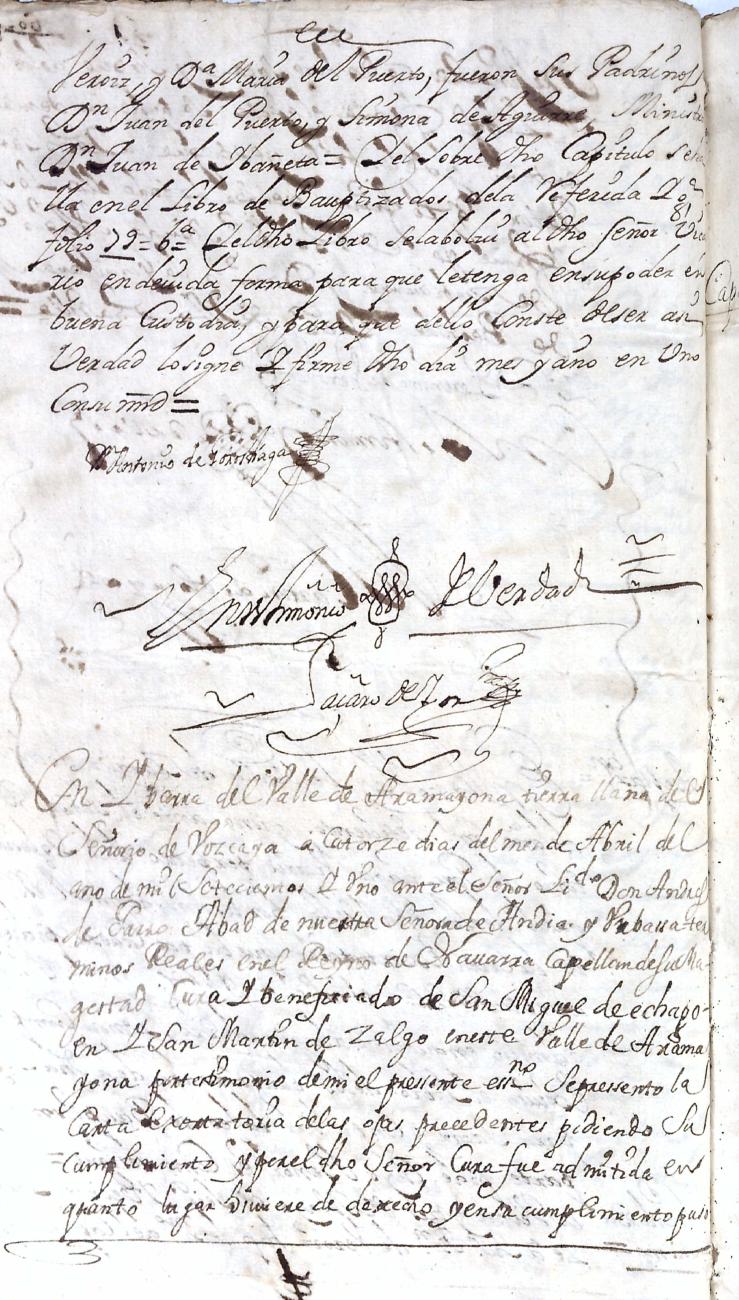 y Dª Maria del Puerto, fueron sus Padrinos
Dn Juan del Puerto, y Simona de Aguirre, Ministro
Dn Juan de Ybañeta = el sobre dho Capitulo se
lla en el Libro de Bauptizados dela Referida
folio 79 = bª el dho Libro selabolui al dho señor Vica
rio endeuida forma para que letenga ensupoder en
buena Custodia, y para que dello Conste deser asi
Verdad losigne Y firme dho dia mes y año en Uno
Consu mrd =
Antonio de
En testimonio de Verdad
En Ybarra del Valle de Aramayona tierra llana de el
Señorio de Vozcaya a Catorze dias del mes de Abril del
año de mil Setecientos Y Uno ante el Señor Lido Don Andres
de Parro Abad de nuestra Señora de Andia y Vrbassa ter
minos Reales enel Reyno de Navarra Capellan de su Ma
gestad Cura Y beneficiado de San Miguel de echago
en Y San Martin de Zalgo eneste Valle de Arama
yona portestimonio demi el pressente essno Sepressento la
Carta Exortatoria delas ojas precedentes pidiendo Su
Cumplimiento y por el dho Señor Cura fue admitida en
quanto lugar huuiere de derecho y en su cumplimiento puso
Cap